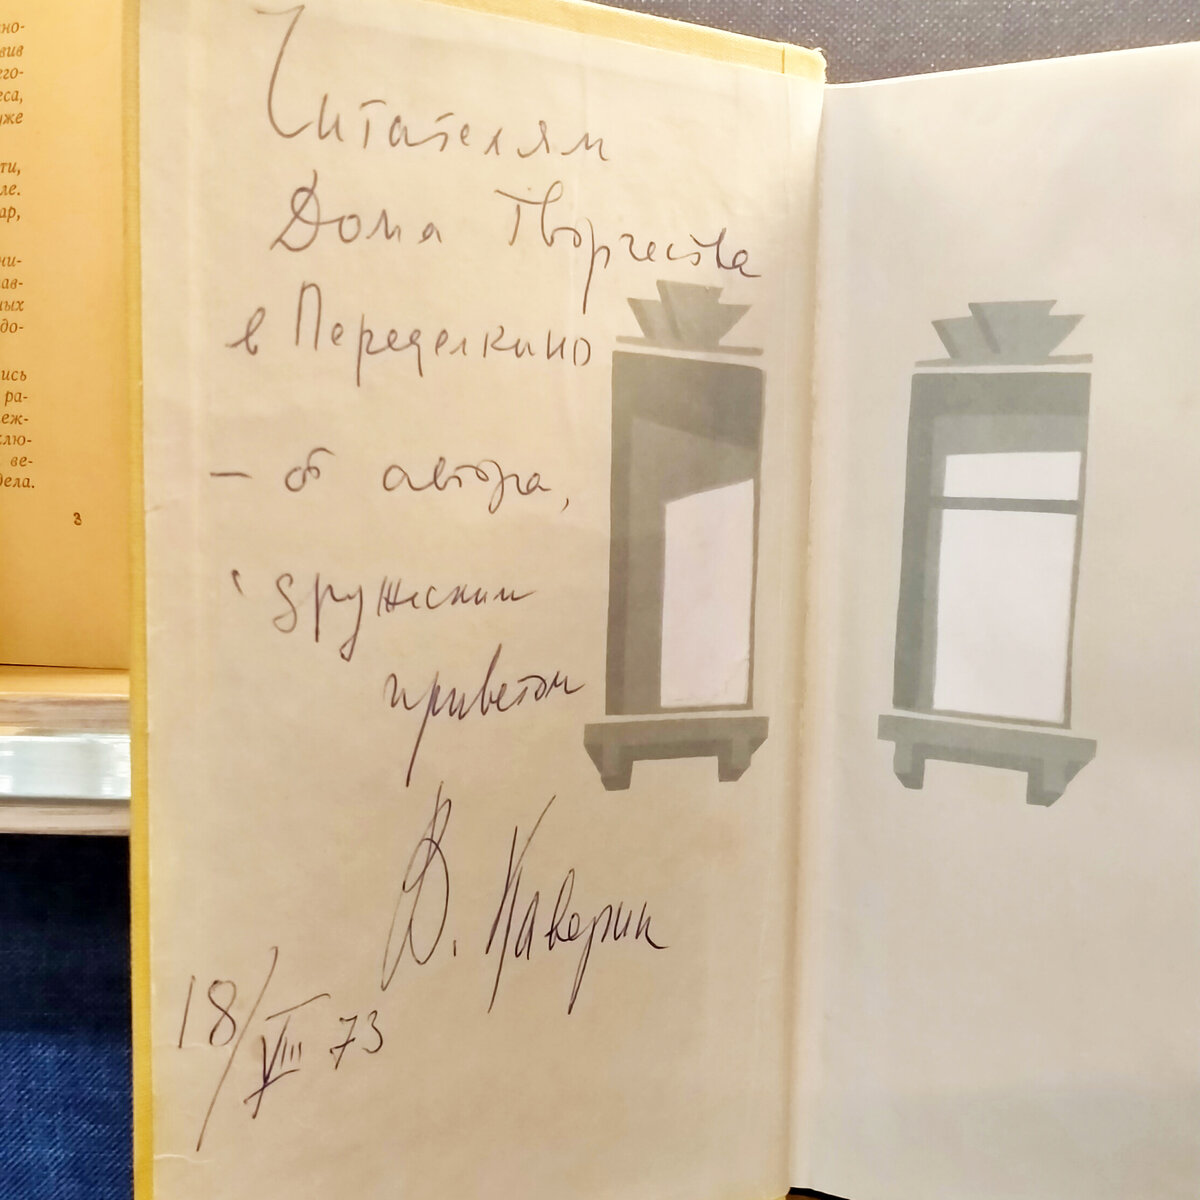 но-
вив
его-
еса,
уже
ти,
ле.
ар,
ни-
ав-
ных
до-
ись
ра-
еж-
клю-
ве-
дела.
3
Читателям
Дома Творчества
в Переделкино
— от автора,
с дружеским
приветом
В. Каверин
18/VIII 73